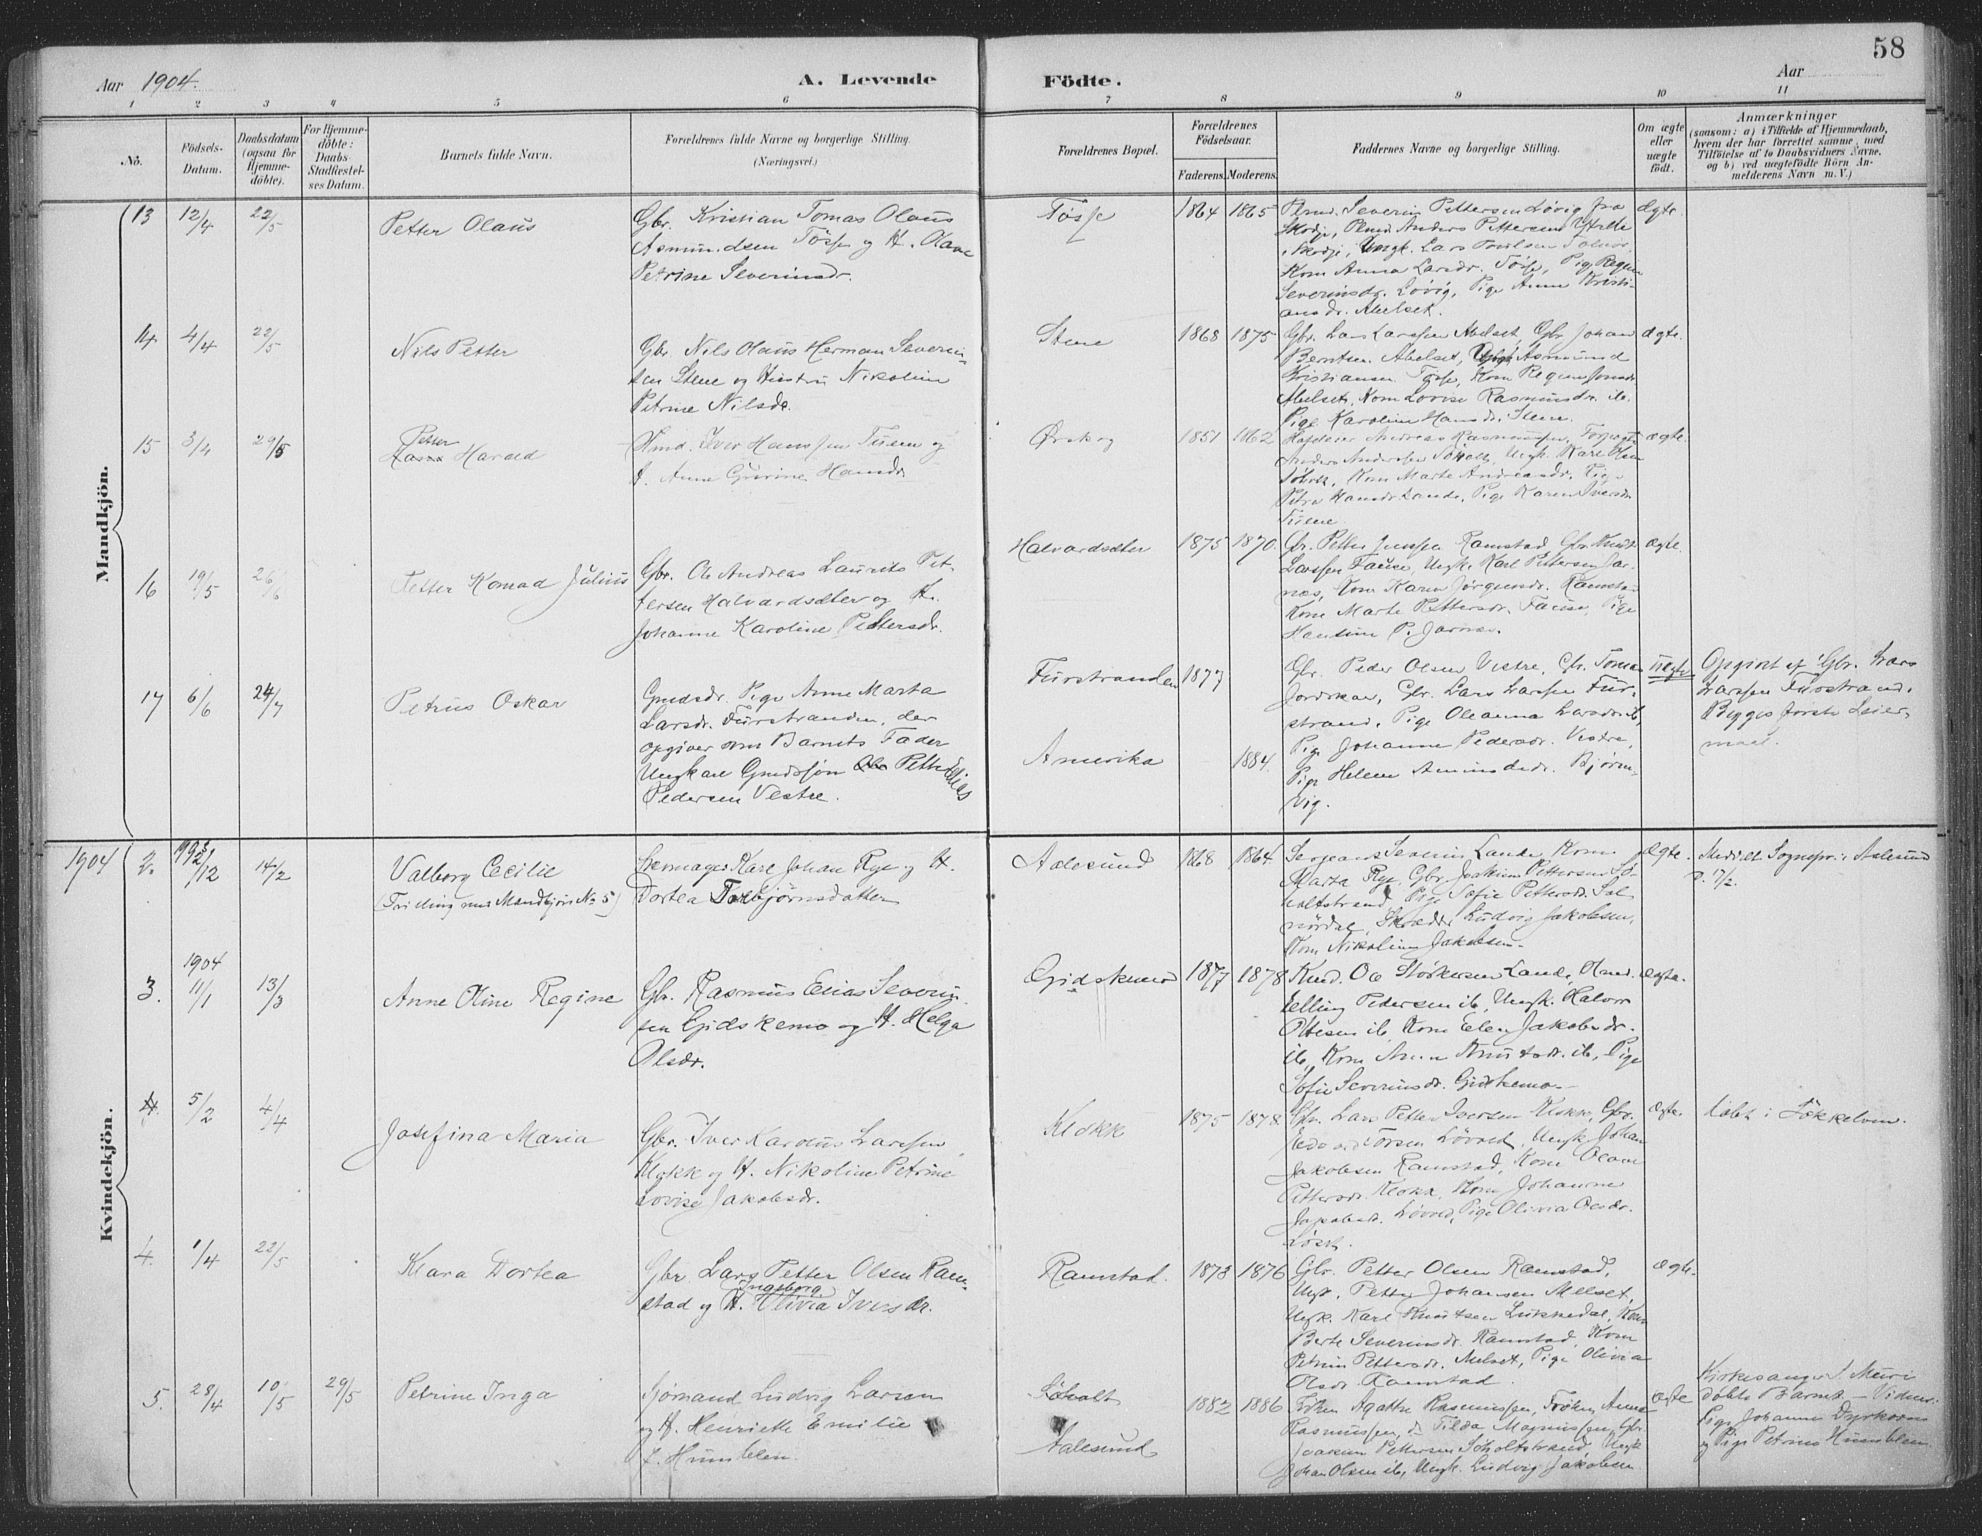 58
Aar 1904.
A. Levende
Födte.
Aar
1 2 3 4 5 6 7 8 9 10 11
No.
Födsels-
Datum.
Daabsdatum
(ogsaa for
Hjemme-
döbte).
For Hjemme-
döbte:
Daabs-
Stadfæstel-
ses Datum.
Barnets fulde Navn.
Forældrenes fulde Navne og borgerlige Stilling.
(Næringsvei.)
Forældrenes Bopæl.
Forældrenes
Födselsaar.
Faderens. Moderens.
Faddernes Navne og borgerlige Stilling.
Om ægte
eller
uægte
födt.
Anmærkninger
(saasom: a) i Tilfælde af Hjemmedaab,
hvem der har forrettet samme, med
Tilföielse af to Daabsvidners Navne,
og b) ved uægtefödte Börn An-
melderens Navn m. V.)
Mandkjön.
13 12/4 22/5
Petter Olaus
Gbr. Kristian Tomas Olaus
Asmundsen Tösse og H. Olave
Petrine Severinsdr.
Tösse
1864 1865
Severin Pettersen Løvig fra
Skodje, Anders Pettersen Ytrebø
i Skodje, Ungk. Lars
Kone Anna Larsdr. Tösse, Pige Regine
Severinsdr. Løvig, Pige Anne Kristi-
ansdr. Abelset.
Ægte.
14 4/4 22/5
Nils Petter
Gbr. Nils Olaus Herman Severin-
sen Stene og Hustru Nikoline
Petrine Nilsdr.
Stene
1868 1875
Gbr. Lars Larssen Abelset, Gbr. Johan
Berntsen Abelset, Asmund
Kristiansen Tösse, Kone Regine Jonsdr.
Abelset, Kone Lovise Rasmusdr. ib.
Pige Karoline Hansdr. Stene.
ægte.
15 3/4 29/5
Petter
Harald
Iver Hanssen og
H. Anne Gurine Hansdr.
Ørskog
1851 1862
Andreas Rasmussen,
Anders Anderssen Søholt, Ungk. Karl Olsen
Søholt, Kone Marte Andreasdr. Pige
Petra Hansdr. Lande, Pige Karen Iversdr.
ægte.
16 19/5 26/6
Petter Konrad Julius
Gbr. Ole Andreas Laurits Pet-
tersen Halvardsæter og H.
Johanne Karoline Pettersdr.
Halvardsæter
1875 1870.
Gbr. Petter Jenssen Ramstad, Gbr. Knut
Larssen Fause, Ungk. Karl Pettersen Jar-
næs, Kone Karen Jørgensdr. Ramstad
Kone Marte Pettersdr. Fause, Pige
P. Jarnes.
ægte.
17 6/6 24/7
Petrus Oskar
Gmdsdr. Pige Anne Marta
Larsdr. Furstranden, der
opgiver som Barnets Fader
Ungkarl Gmdssøn Petter Elias
Pedersen Vestre.
Furstranden
Amerika
1877
1884.
Gbr. Peder Olsen Vestre, Gbr. Tomas
Jordskar, Gbr. Lars Larssen Fur-
strand, Pige Oleanna Larsdr. ib,
Pige Johanne Pedersdr. Vestre,
Pige Helene Amundsdr. Bjørn-
vig.
uægte
Opgivet af Gbr. Lars
Larssen Furstrand.
Begges første Leier-
maal.
Kvindekjön.
1904
2. 1903 12 14/2
Valborg Cecilie
(Tvilling med Mandkjøn No 5)
Karl Johan Rye og H.
Dortea Torbjørnsdatter
Aalesund
1868 1864.
Sergeant Severin Lande, Kone
Marta Rye, Gbr. Joakim Pettersen Sø-
holtstrand, Pige Sofie Pettersdr. Sol-
nørdal, Skrædder Ludvig Jakobsen,
Kone Nikoline Jakobsen.
Ægte.
Meddelt Sognepr. i Aalesund
17/2.
3. 1904 11/1 13/3
Anne Oline Regine
Gbr. Rasmus Elias Severin-
sen Gjidskemo og H. Helga
Olsdr.
Gjidskemo
1877 1878
Gmd. Ole Størkersen Lande,
Elling Pedersen ib, Ungk. Halvor
Ottesen ib, Kone Elen Jakobsdr.
ib, Kone Knutsdr. ib, Pige
Sofie Severinsdr. Gjidskemo.
Ægte.
5/2 4/4
Josefina Maria
Gbr. Iver Karolus Larssen
Klokk og H. Nikoline Petrine
Lovise Jakobsdr.
Klokk
1875 1878
Gbr. Lars Petter Iversen Klokk, Gbr.
Løvold, Ungk. Johan
Jakobsen Ramstad, Kone Olave
Pettersdr. Klokk, Kone Johanne
Jakobsdr. Løvold, Pige Olivia Olsdr.
Ægte.
Døbt i Søkkelven.
4. 1/4 22/5
Klara Dortea
Gbr. Lars Petter Olsen Ram-
stad og H. Ingeborg Olivia Iversdr.
Ramstad.
1873 1876
Gbr. Petter Olsen Ramstad,
Ungk. Petter Johansen Melset,
Ungk. Karl Knutsen Lukkedal, Kone
Berte Severinsdr. Ramstad, Kone
Petrine Pettersdr. Melset, Pige Olivia
Olsdr. Ramstad.
Ægte.
5. 28/4 10/5 29/5
Petrine Inga
Sjømand Ludvig Larsen
og H. Henriette Emilie
f. Humblen.
Søholt
Aalesund
1882 1886
Frøken Agathe Rasmussen, Frøken Anna
Rasmussen, Tilda Magnussen, Gbr.
Joakim Pettersen Søholtstrand, Ungk
Johan Olsen ib, Ungk. Ludvig Jakobsen
Ægte
Kirkesanger S. Muri
døbte Barnet – Vidner:
Pige Johanne Dyrkorn
og Pige Petrine Humblen.